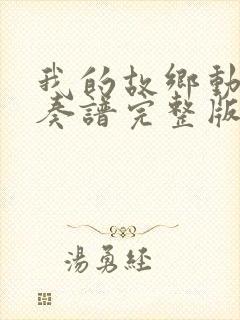 我的故鄉動
奏譜完整版
湯勇經